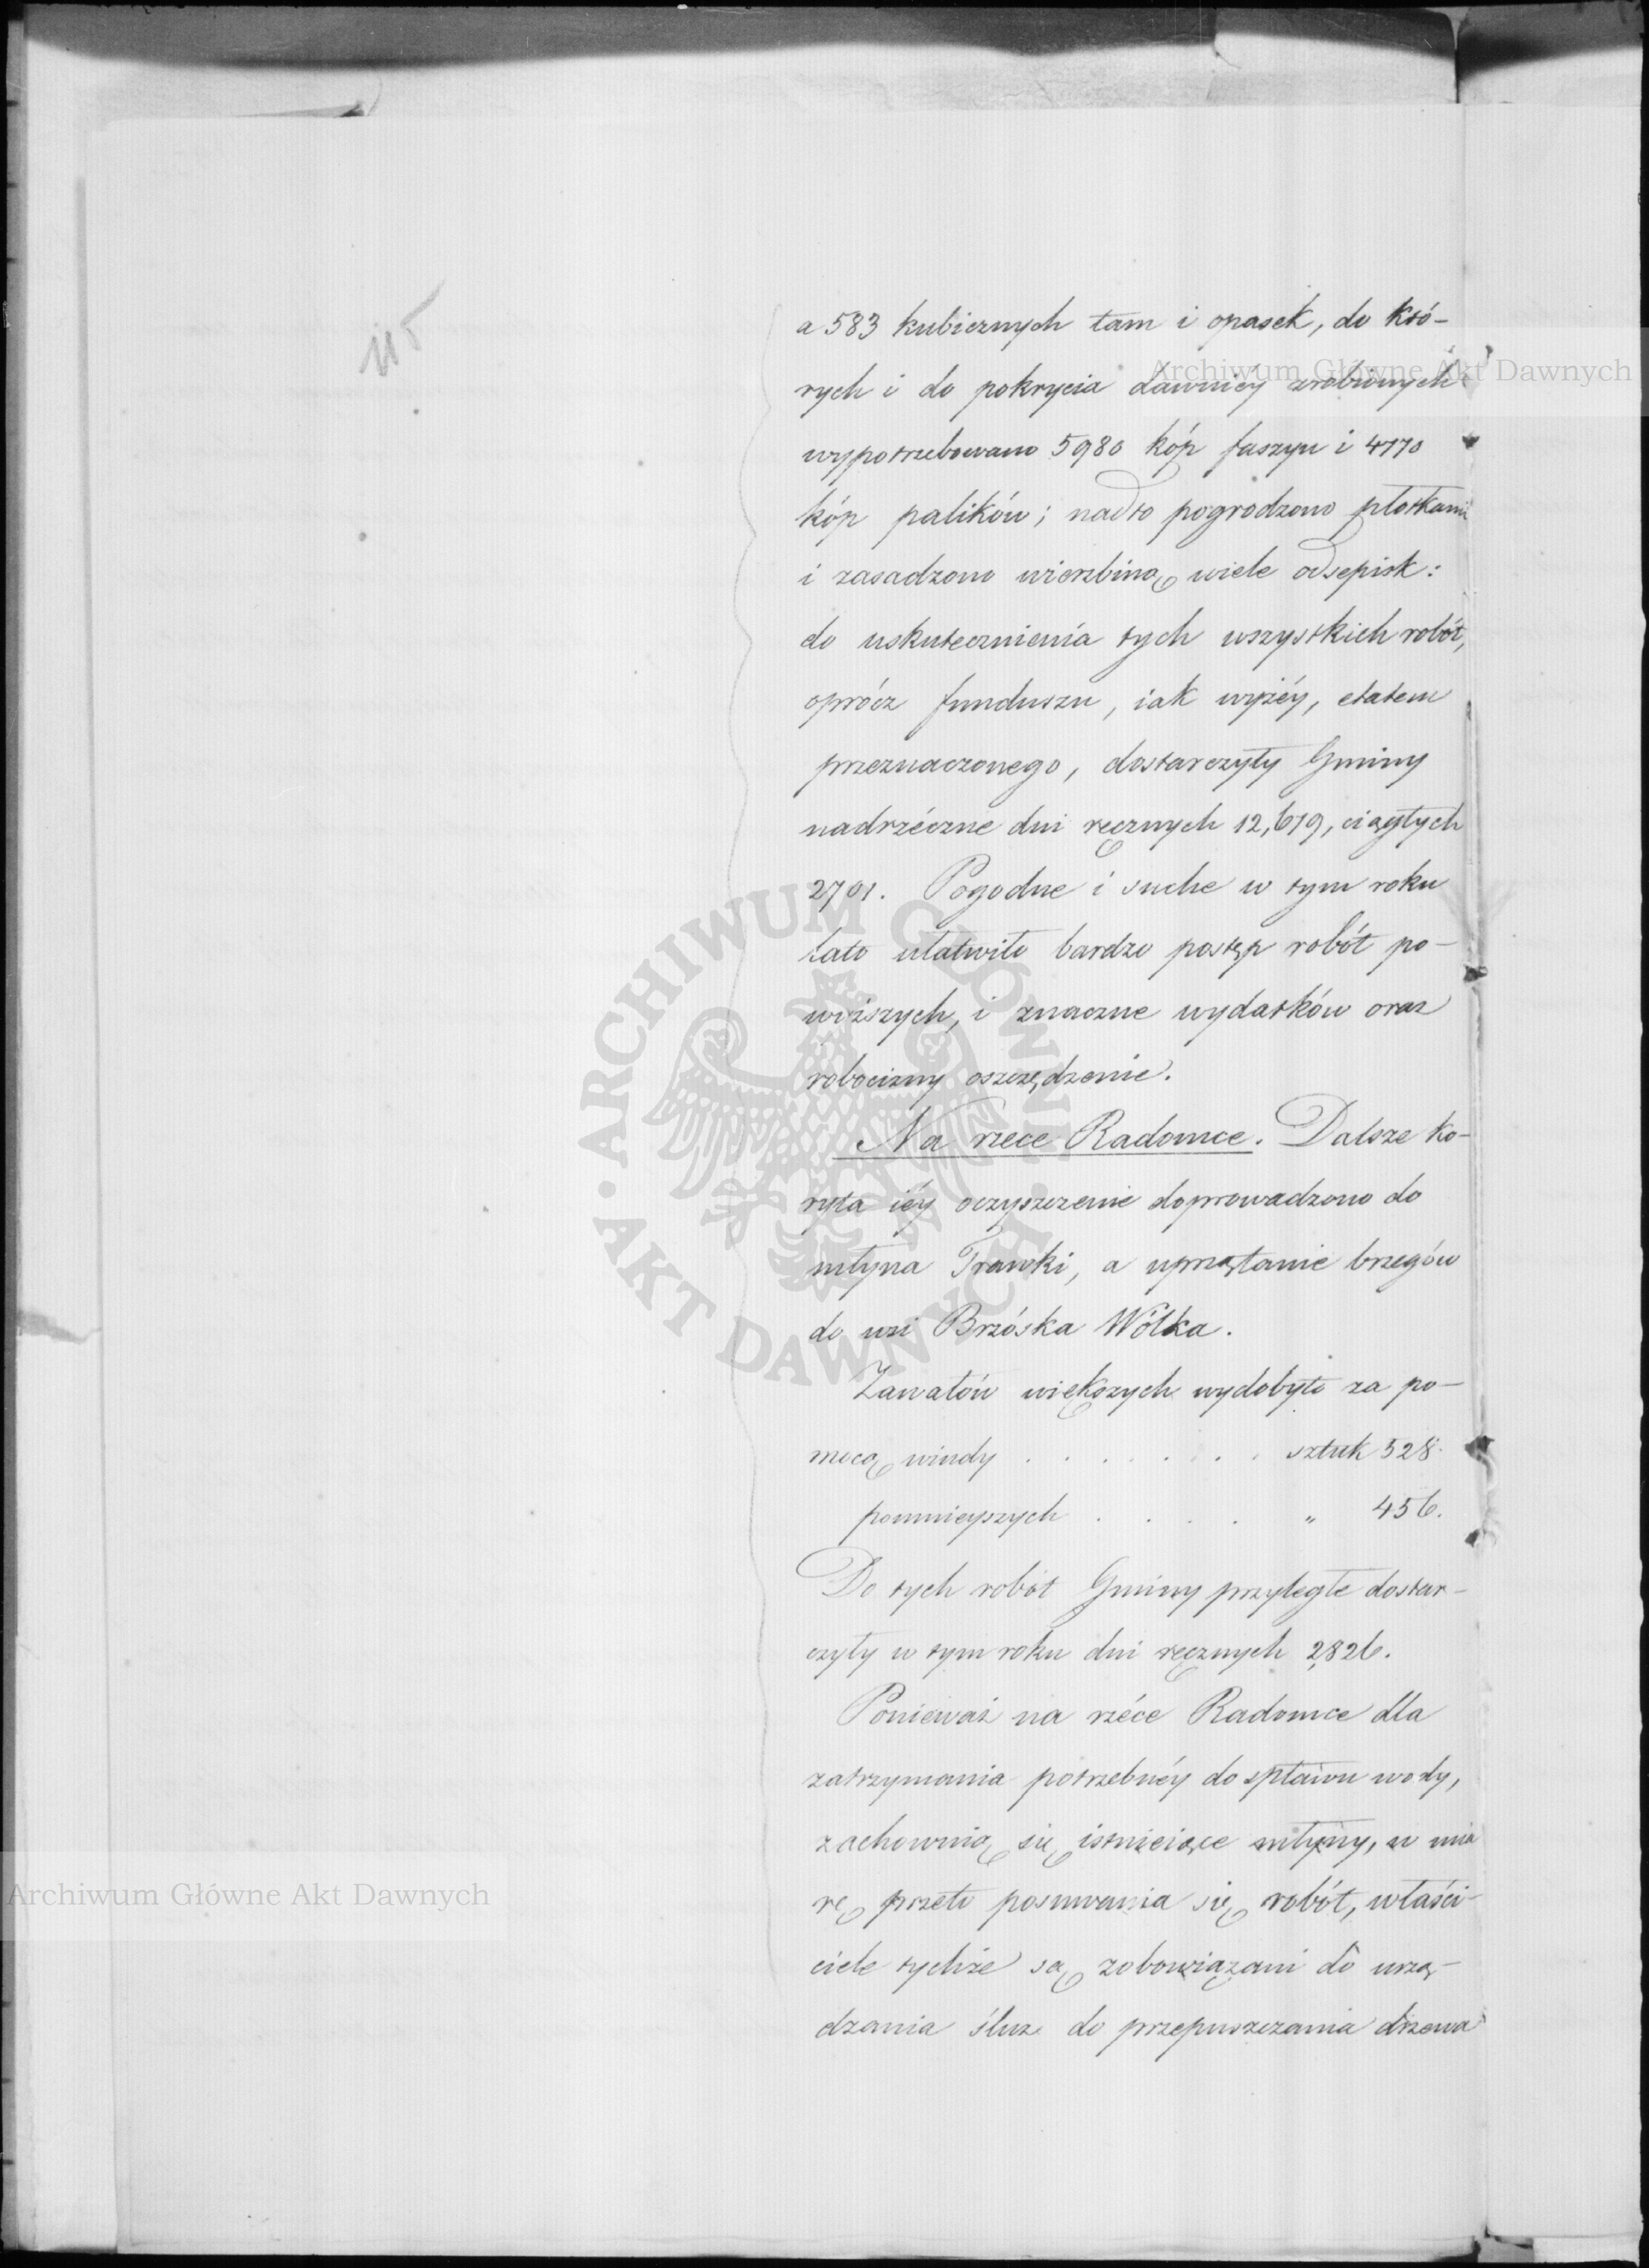 115
a 583 kubicznych tam i opasek, do któ-
rych i do pokrycia dawniéy zrobionych
wypotrzebowano 5980 kóp faszyn i 4770
kóp palików; nadto pogrodzono płotkami
i zasadzono wierzbiną wiele odsepisk:
do uskutecznienia tych wszystkich robót,
oprócz funduszu, iak wyżéy, etatem
przeznaczonego, dostarczyły Gminy
nadrzéczne dni ręcznych 12,679, ciągłych
2701. Pogodne i suche w tym roku
lato ułatwiło bardzo postęp robót po-
wiższych, i znaczne wydatków oraz
robocizny oszczędzenie.
Na rzece Radomce. Dalsze ko-
ryta iéy oczyszczenie doprowadzono do
młyna Trawki, a uprzątanie brzegów
do wsi Brzóska Wólka.
Zawałów większych wydobyto za po-
mocą windy . . . . . . . sztuk 528.
pomnieyszych . . . . " 456.
Do tych robót Gminy przyległe dostar-
czyły w tym roku dni ręcznych 2,826.
Ponieważ na rzéce Radomce dla
zatrzymania potrzebnéy do spławu wody,
zachownią się istnieiące młyny, w mia
rę przeto posuwania się robót, właści-
ciele tychże są zobowiązani do urzą-
dzania śluz do przepuszczania drzewa
Archiwum Główne Akt Dawnych
Archiwum Główne Akt Dawnych
ARCHIWUM GŁÓWNE · AKT DAWNYCH ·